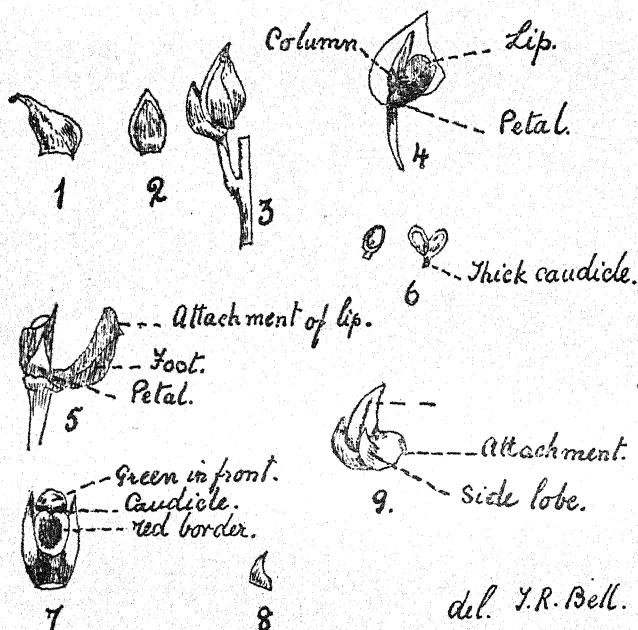 Column
Lip.
Petal.
1
2
3
4
6
Thick caudicle.
Attachment of lip.
Foot.
Petal.
5
Attachment.
Side lobe.
9.
Green in front.
Caudicle.
red border.
7
8
del. T.R. Bell.